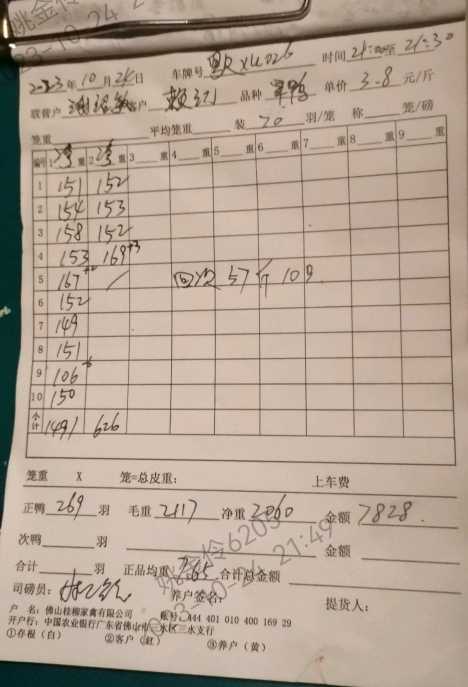 姚金伶
23-10-24 2
2023年10月24日 车牌号 X4026 时间21:00至21:30
联营户 客户 赖 品种 鸭 单价 3.8 元/斤
笼重 平均笼重 装 20 羽/笼 称 笼/磅
编号 1 净 重 2 净 重 3 重 4 重 5 重 6 重 7 重 8 重 9 重
1 151 152
2 154 153
3 158 152
4 153 169+3
5 167+2 / 57 109
6 152
7 149
8 151
9 106-6
10 150
小计 1491 626
笼重 X 笼=总皮重: 上车费
正鸭 269 羽 毛重 2117 净重 2060 金额 7828.
次鸭 羽 金额
合计 羽 正品均重 7.65 合计总金额
姚金伶6205
2023-10-24 21:49
司磅员: 养户签名: 提货人:
户 名: 佛山桂柳家禽有限公司 账号: 444 401 010 400 169 29
开户行: 中国农业银行广东省佛山市三水区三水支行
①存根(白) ②客户(红) ③养户(黄)